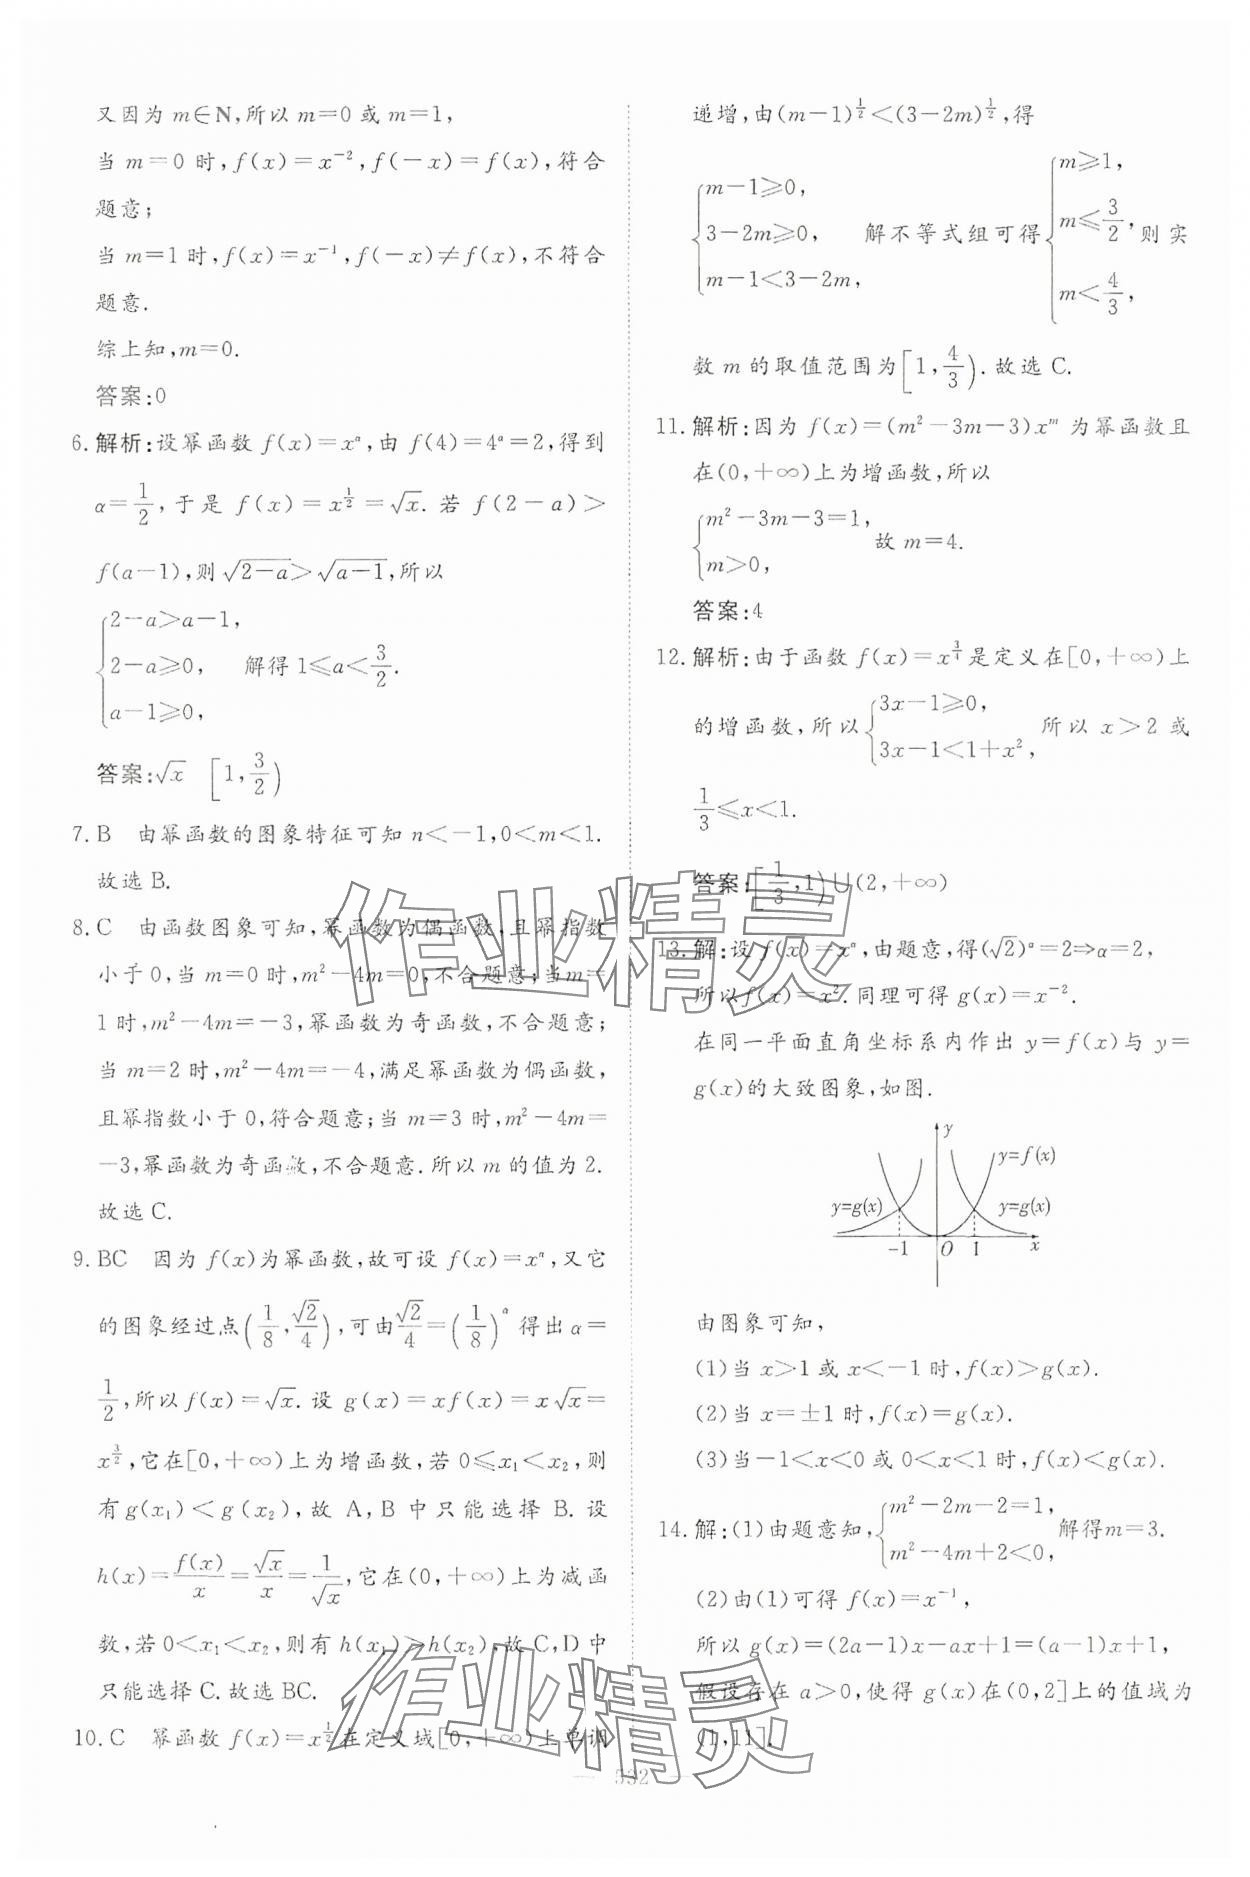 又因为 m∈N,所以 m=0 或 m=1,
当 m=0 时,f(x)=x⁻²,f(-x)=f(x),符合
题意;
当 m=1 时,f(x)=x⁻¹,f(-x)≠f(x),不符合
题意.
综上知,m=0.
答案:0
6.解析:设幂函数 f(x)=xᵅ,由 f(4)=4ᵅ=2,得到
α=1/2,于是 f(x)=x^(1/2)=√x.若 f(2-a)>
f(a-1),则√(2-a)>√(a-1),所以
{2-a>a-1,
2-a≥0, 解得 1≤a<3/2.
a-1≥0,
答案:√x [1,3/2)
7.B 由幂函数的图象特征可知 n<-1,0<m<1.
故选 B.
8.C 由函数图象可知,幂函数为偶函数,且幂指数
小于 0,当 m=0 时,m²-4m=0,不合题意;当 m=
1 时,m²-4m=-3,幂函数为奇函数,不合题意;
当 m=2 时,m²-4m=-4,满足幂函数为偶函数,
且幂指数小于 0,符合题意;当 m=3 时,m²-4m=
-3,幂函数为奇函数,不合题意.所以 m 的值为 2.
故选 C.
9.BC 因为 f(x)为幂函数,故可设 f(x)=xᵅ,又它
的图象经过点(1/8,√2/4),可由√2/4=(1/8)ᵅ 得出 α=
1/2,所以 f(x)=√x.设 g(x)=xf(x)=x√x=
x^(3/2),它在[0,+∞)上为增函数,若 0≤x₁<x₂,则
有 g(x₁)<g(x₂),故 A,B 中只能选择 B.设
h(x)=f(x)/x=√x/x=1/√x,它在(0,+∞)上为减函
数,若 0<x₁<x₂,则有 h(x₁)>h(x₂),故 C,D 中
只能选择 C.故选 BC.
10.C 幂函数 f(x)=x^(1/2)在定义域[0,+∞)上单调
递增,由(m-1)^(1/2)<(3-2m)^(1/2),得
{m-1≥0,
3-2m≥0,
m-1<3-2m, 解不等式组可得{m≥1,
m≤3/2,
m<4/3, 则实
数 m 的取值范围为[1,4/3).故选 C.
11.解析:因为 f(x)=(m²-3m-3)xᵐ 为幂函数且
在(0,+∞)上为增函数,所以
{m²-3m-3=1,
m>0, 故 m=4.
答案:4
12.解析:由于函数 f(x)=x^(3/4)是定义在[0,+∞)上
的增函数,所以{3x-1≥0,
3x-1<1+x², 所以 x>2 或
1/3≤x<1.
答案:[1/3,1)∪(2,+∞)
13.解:设 f(x)=xᵅ,由题意,得(√2)ᵅ=2⇒α=2,
所以 f(x)=x².同理可得 g(x)=x⁻².
在同一平面直角坐标系内作出 y=f(x)与 y=
g(x)的大致图象,如图.
y
y=f(x)
y=g(x) y=g(x)
-1 O 1 x
由图象可知,
(1)当 x>1 或 x<-1 时,f(x)>g(x).
(2)当 x=±1 时,f(x)=g(x).
(3)当-1<x<0 或 0<x<1 时,f(x)<g(x).
14.解:(1)由题意知,{m²-2m-2=1,
m²-4m+2<0, 解得 m=3.
(2)由(1)可得 f(x)=x⁻¹,
所以 g(x)=(2a-1)x-ax+1=(a-1)x+1,
假设存在 a>0,使得 g(x)在(0,2]上的值域为
(1,11].
— 332 —
作业精灵
作业精灵